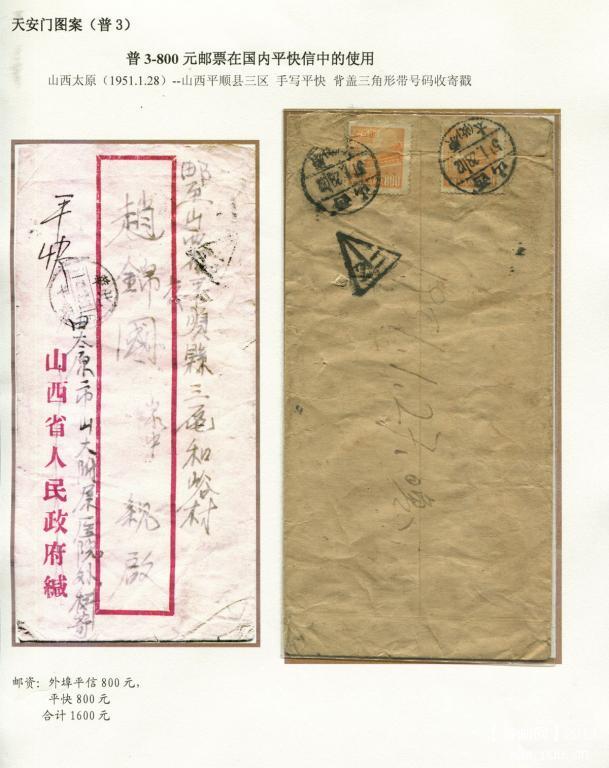 天安门图案（普 3）
普 3-800 元邮票在国内平快信中的使用
山西太原（1951.1.28）--山西平顺县三区 手写平快 背盖三角形带号码收寄戳
平快
趙錦國
家中
親啟
三区和峪村
由太原市山大附屬医院外科寄
山西省人民政府緘
山西
51.1.28
800
邮资：外埠平信 800 元，
平快 800 元
合计 1600 元